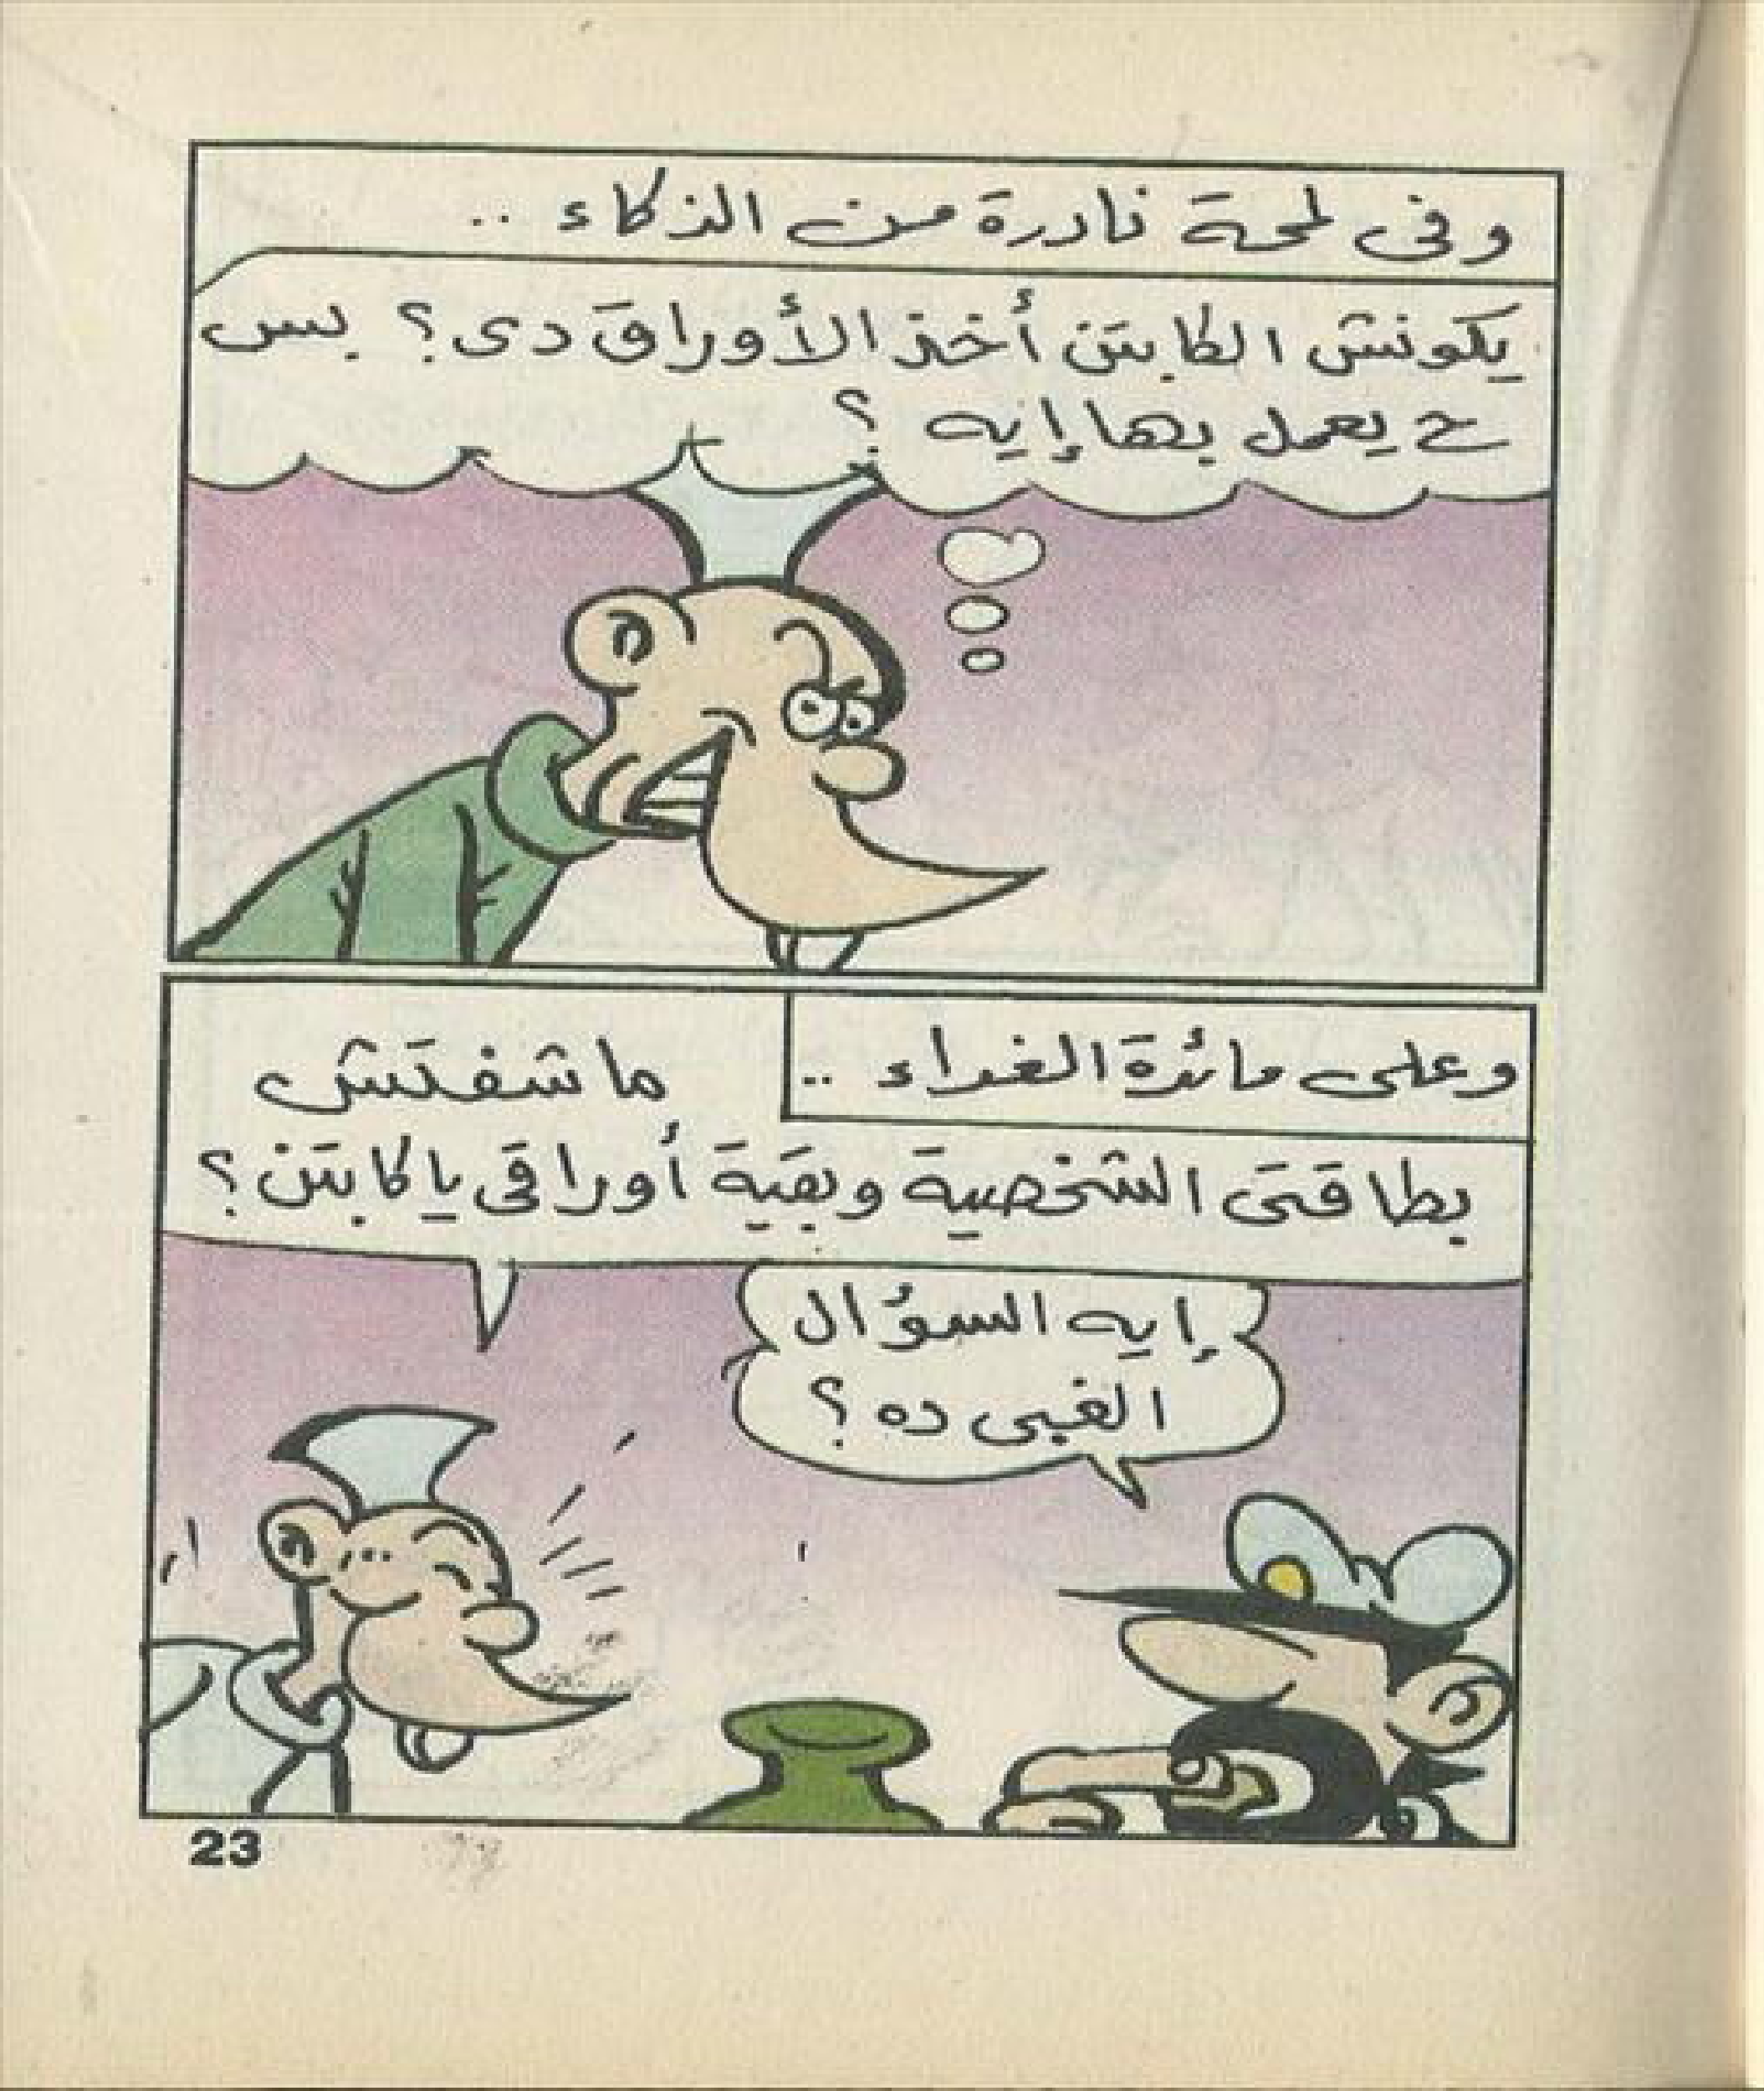 وفى لمحة نادرة من الذكاء ..
يكونش الكابتن أخذ الأوراق دى؟ بس
ح يعمل بها إيه ؟
وعلى مائدة الغداء ..
ماشفتش
بطاقتى الشخصية وبقية أوراقى ياكابتن؟
إيه السؤال
الغبى ده؟
23